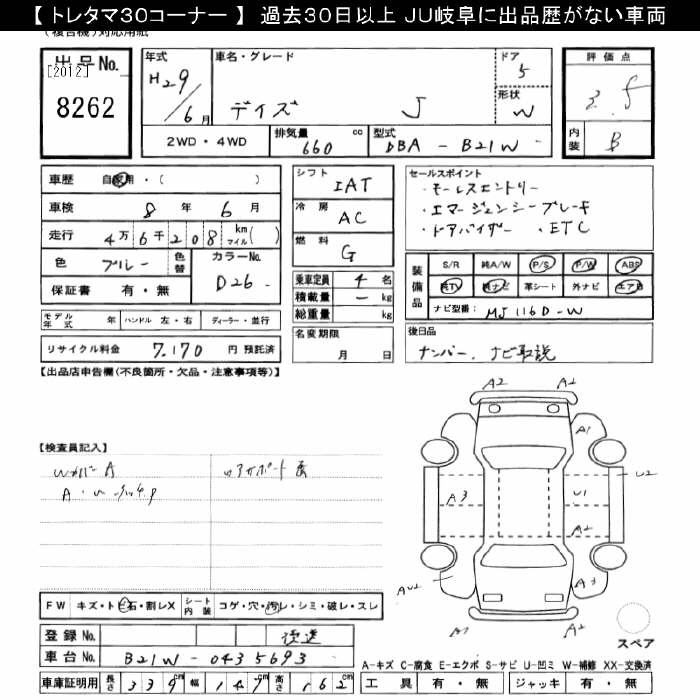 【 トレタマ30コーナー 】 過去30日以上 JU岐阜に出品歴がない車両
(複合機)対応用紙
出品No.
[2012]
8262
年式
H29/6月
車名・グレード
デイズ J
ドア
5
形状
W
評価点
3.5
内装
B
2WD・4WD
排気量 660 cc
型式 DBA - B21W
車歴 自家用・( )
車検 8年 6月
走行 4万6千208 km マイル( )
色 ブルー
色替
カラーNo. D26
保証書 有・無
シフト IAT
冷房 AC
燃料 G
乗車定員 4名
積載量 - kg
総重量 kg
セールスポイント
・キーレスエントリー
・エマージェンシーブレーキ
・ドアバイザー ・ETC
装備品
S/R 純A/W P/S P/W ABS
純TV 純ナビ 革シート 外ナビ エアB
ナビ型番: MJ116D-W
モデル年式 年 ハンドル 左・右 ディーラー・並行
リサイクル料金 7,170 円 預託済
名変期限 月 日
後日品
ナンバー、ナビ取説
【出品店申告欄(不良箇所・欠品・注意事項等)】
【検査員記入】
A2 A2
A1
U2
A3
U1
A2
A3
A1 A2
FW キズ・トビ石・割レX
シート内装 コゲ・穴・汚レ・シミ・破レ・スレ
登録No.
車台No. B21W-0435693
車庫証明用 長さ 339cm 幅 147cm 高さ 162cm
スペア
A-キズ C-腐食 E-エクボ S-サビ U-凹ミ W-補修 XX-交換済
工具 有・無 ジャッキ 有・無